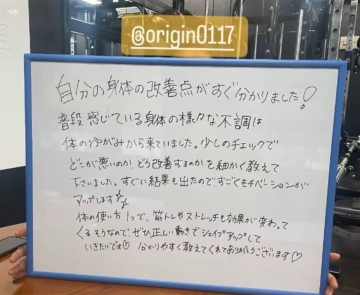 @origin0117
自分の身体の改善点がすぐ分かりました!
普段感じている身体の様々な不調は
体のゆがみから来ていました。少しのチェックで
どこが悪いのか、どう改善するのかを細かく教えて
下さいました。すぐに結果も出たのですごくモチベーションが
アップします
体の使い方1つで、筋トレやストレッチも効果が変わって
くるそうなので、ぜひ正しい動きでシェイプアップして
いきたいです♡ 分かりやすく教えてくれてありがとうございます♡